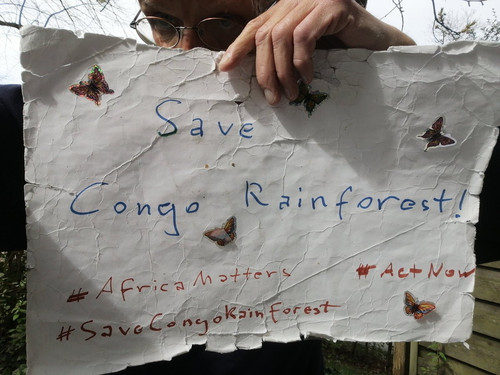 Save
Congo Rainforest!
#AfricaMatters #ActNow
#SaveCongoRainForest